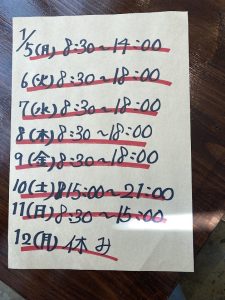 1/5(月) 8:30~14:00
6(火) 8:30~18:00
7(水) 8:30~18:00
8(木) 8:30~18:00
9(金) 8:30~18:00
10(土) 15:00~21:00
11(月) 8:30~15:00
12(月) 休み